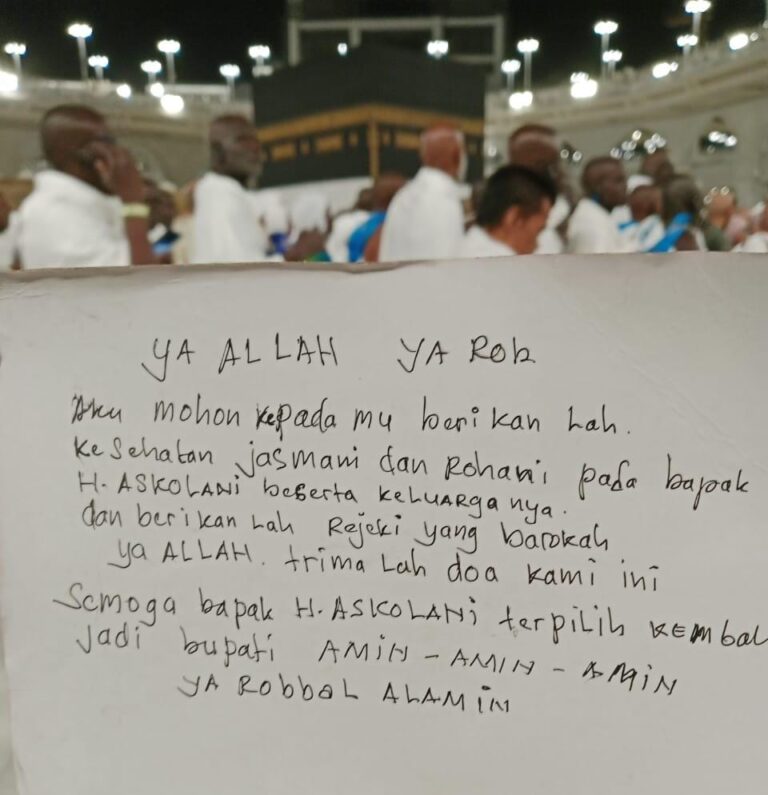 YA ALLAH YA ROB
Aku mohon kepada mu beri kan Lah.
KeSehatan jasmani dan Rohani pada bapak
H. ASKOLANI beserta KELUARGA nya.
dan berikan Lah Rejeki yang barokah
ya ALLAH. trima Lah doa kami ini
Semoga bapak H. ASKOLANi terpiLih KEmbal
jadi bupati AMiN - AMIN - AMiN
YA RObbaL ALAMiN